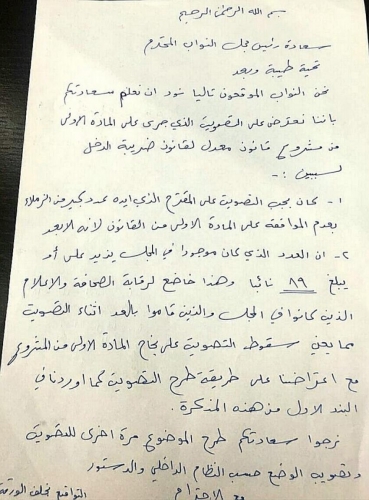 بسم الله الرحمن الرحيم
سعادة رئيس مجلس النواب المحترم
تحية طيبة وبعد
نحن النواب الموقعون تاليا نود ان نعلم سعادتكم
باننا نعترض على التصويت الذي جرى على المادة الاولى
من مشروع قانون معدل لقانون ضريبة الدخل
لسببين :-
١- كان يجب التصويت على المقترح الذي ايده عدد كبير من الزملاء
بعدم الموافقة على المادة الاولى من القانون لانه الابعد
٢- ان العدد الذي كان موجودا في المجلس يزيد على أو
يبلغ ٨٩ نائبا وهذا خاضع لرقابة الصحافة والاعلام
الذين كانوا في المجلس والذين قاموا بالعد اثناء التصويت
مما يعني سقوط التصويت على نجاح المادة الاولى من المشروع
مع اعتراضنا على طريقة طرح التصويت كما اوردنا في
البند الاول من هذه المذكرة.
نرجوا سعادتكم طرح الموضوع مرة اخرى للتصويت
وتصويب الوضع حسب النظام الداخلي والدستور
مع الاحترام
التواقيع خلف الورقة